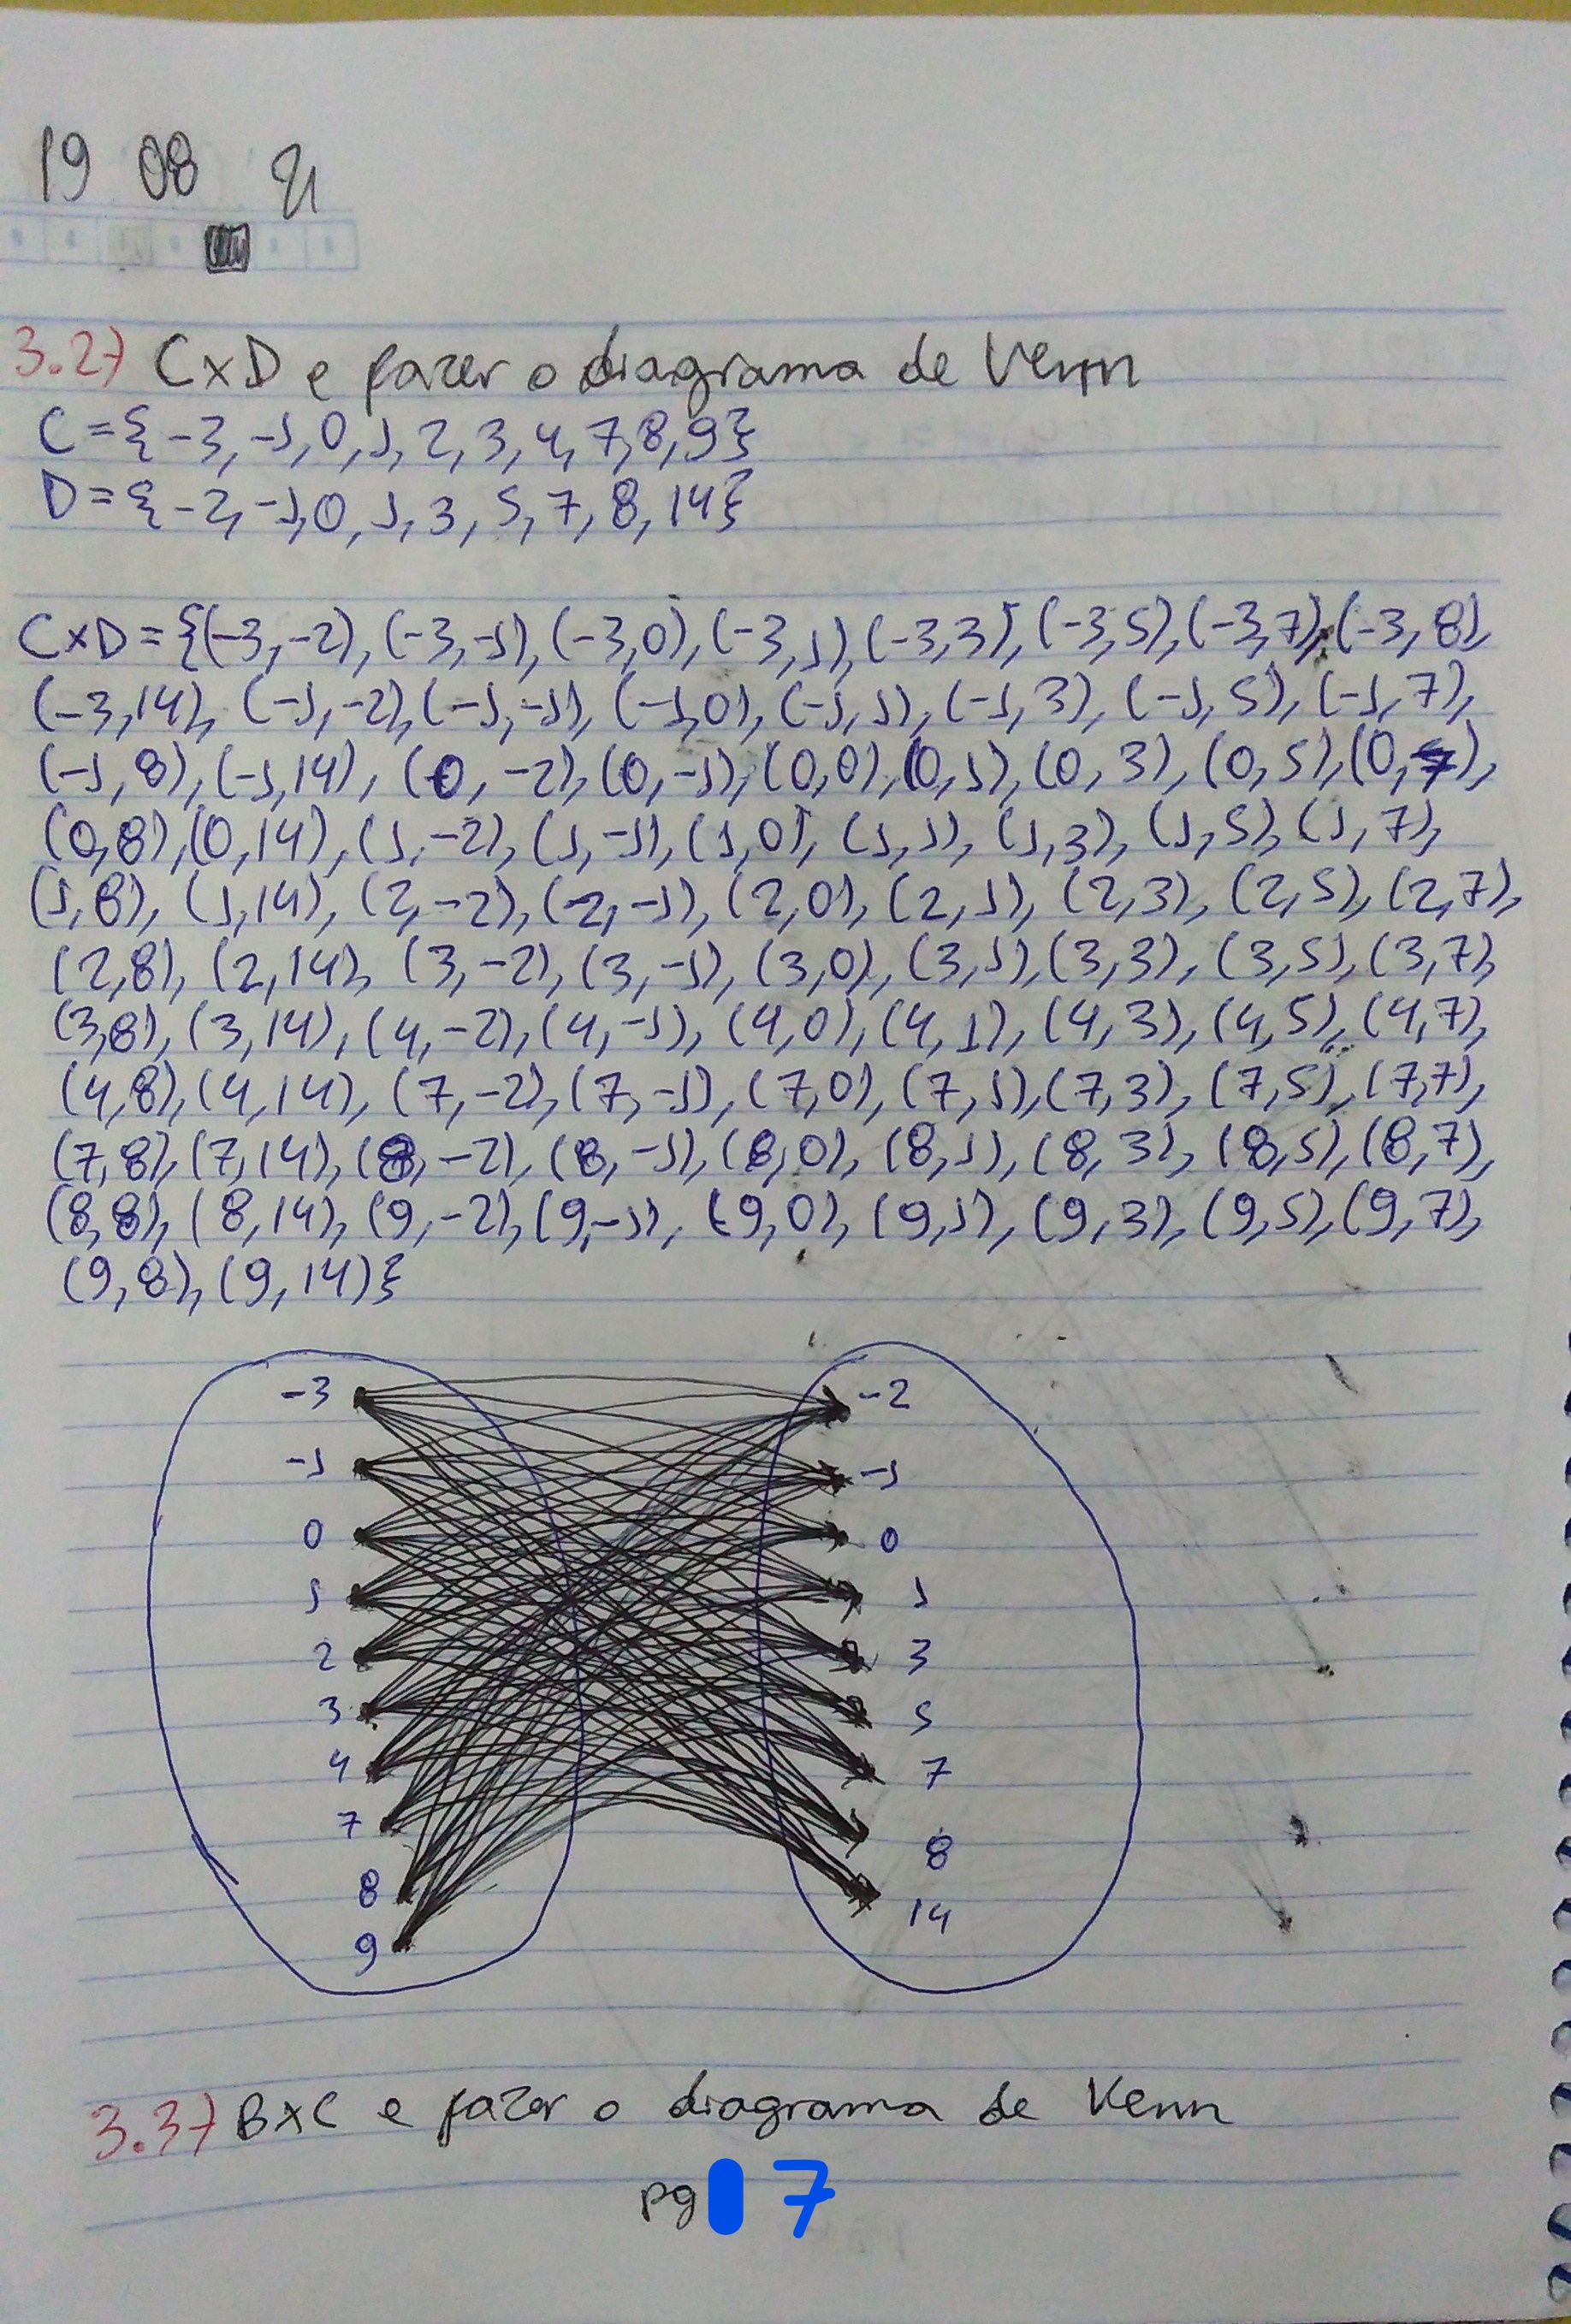 19 08 21
3.2) CxD e fazer o diagrama de Venn
C={-3,-1,0,1,2,3,4,7,8,9}
D={-2,-1,0,1,3,5,7,8,14}
CxD={(-3,-2),(-3,-1),(-3,0),(-3,1),(-3,3),(-3,5),(-3,7),(-3,8),
(-3,14),(-1,-2),(-1,-1),(-1,0),(-1,1),(-1,3),(-1,5),(-1,7),
(-1,8),(-1,14),(0,-2),(0,-1),(0,0),(0,1),(0,3),(0,5),(0,7),
(0,8),(0,14),(1,-2),(1,-1),(1,0),(1,1),(1,3),(1,5),(1,7),
(1,8),(1,14),(2,-2),(2,-1),(2,0),(2,1),(2,3),(2,5),(2,7),
(2,8),(2,14),(3,-2),(3,-1),(3,0),(3,1),(3,3),(3,5),(3,7),
(3,8),(3,14),(4,-2),(4,-1),(4,0),(4,1),(4,3),(4,5),(4,7),
(4,8),(4,14),(7,-2),(7,-1),(7,0),(7,1),(7,3),(7,5),(7,7),
(7,8),(7,14),(8,-2),(8,-1),(8,0),(8,1),(8,3),(8,5),(8,7),
(8,8),(8,14),(9,-2),(9,-1),(9,0),(9,1),(9,3),(9,5),(9,7),
(9,8),(9,14)}
-3 -2
-1 -1
0 0
1 1
2 3
3 5
4 7
7 8
8 14
9
3.3) BxC e fazer o diagrama de Venn
pg 7